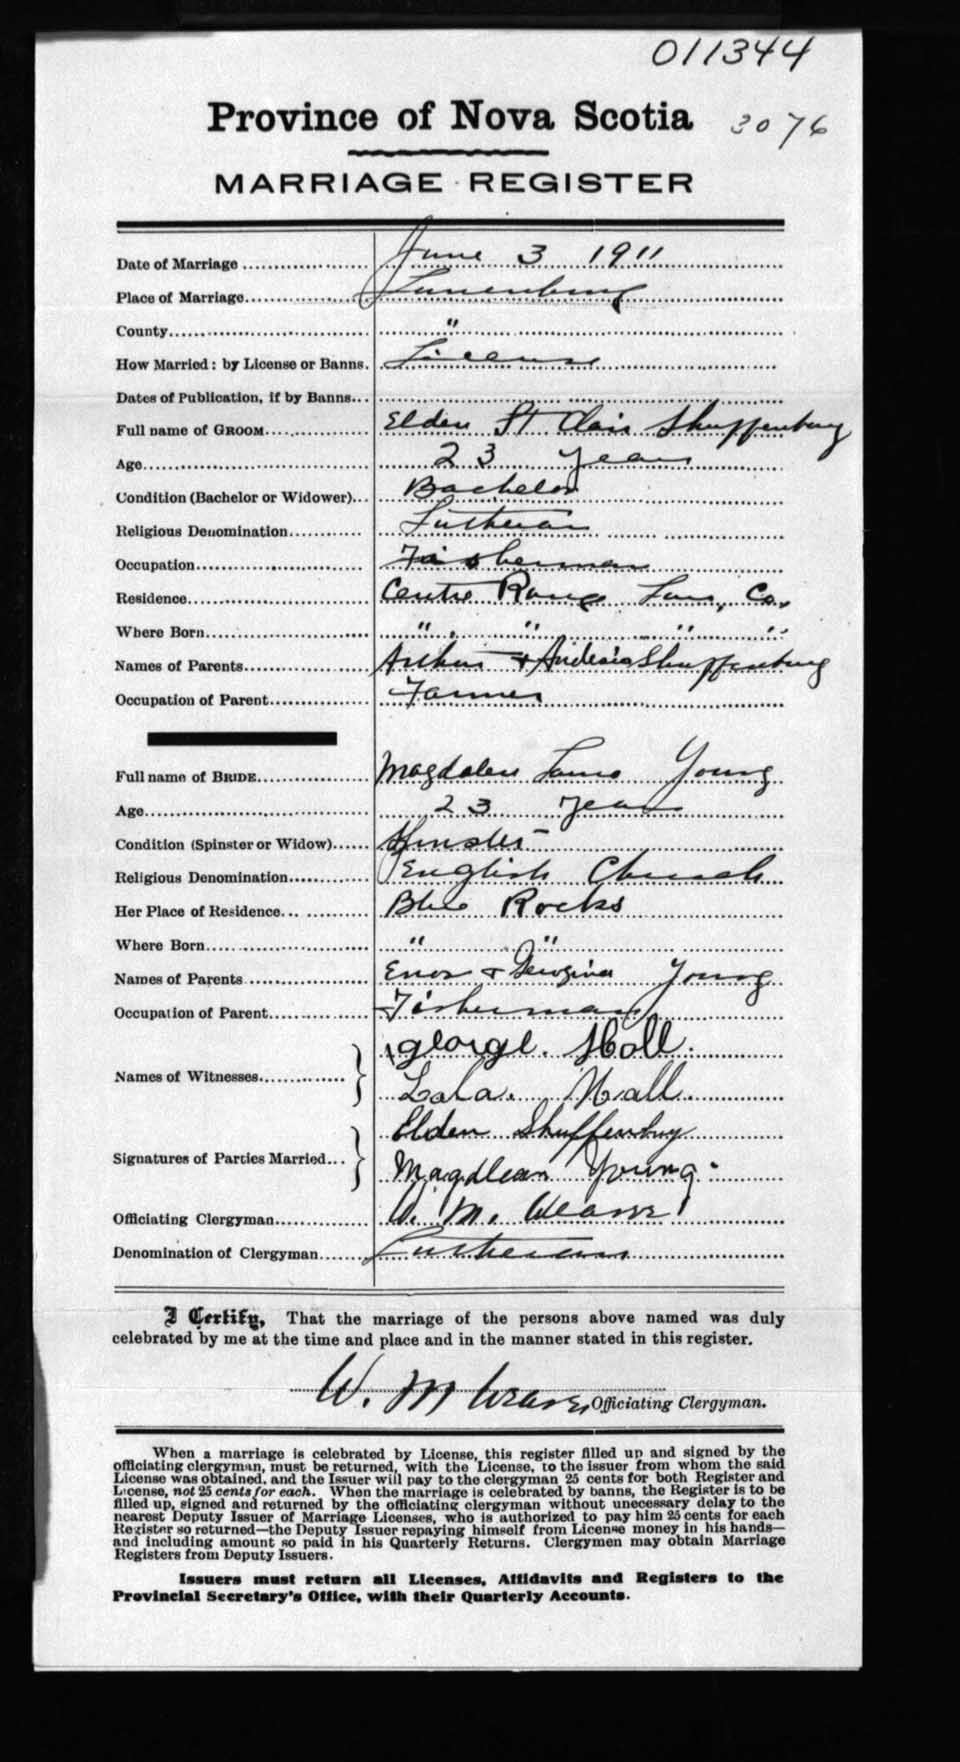 011344
Province of Nova Scotia 3076
MARRIAGE REGISTER
Date of Marriage June 3 1911
Place of Marriage Lunenburg
County "
How Married: by License or Banns. License
Dates of Publication, if by Banns
Full name of GROOM Elden St Clair Shuffenburg
Age 23 years
Condition (Bachelor or Widower) Bachelor
Religious Denomination Lutheran
Occupation Fisherman
Residence Centre Range Lun, Co.
Where Born " " " "
Names of Parents Arthur + Shuffenburg
Occupation of Parent Farmer
Full name of BRIDE Magdalen Young
Age 23 years
Condition (Spinster or Widow) Spinster
Religious Denomination English Church
Her Place of Residence Blue Rocks
Where Born " "
Names of Parents Enos + Georgina Young
Occupation of Parent Fisherman
Names of Witnesses George Hall.
Lola. Hall.
Signatures of Parties Married Elden Shuffenburg
Magdlean Young.
Officiating Clergyman W. M. Weaver
Denomination of Clergyman Lutheran
I Certify, That the marriage of the persons above named was duly
celebrated by me at the time and place and in the manner stated in this register.
W. M Weaver Officiating Clergyman.
When a marriage is celebrated by License, this register filled up and signed by the
officiating clergyman, must be returned, with the License, to the issuer from whom the said
License was obtained, and the Issuer will pay to the clergyman 25 cents for both Register and
License, not 25 cents for each. When the marriage is celebrated by banns, the Register is to be
filled up, signed and returned by the officiating clergyman without unnecessary delay to the
nearest Deputy Issuer of Marriage Licenses, who is authorized to pay him 25 cents for each
Register so returned—the Deputy Issuer repaying himself from License money in his hands—
and including amount so paid in his Quarterly Returns. Clergymen may obtain Marriage
Registers from Deputy Issuers.
Issuers must return all Licenses, Affidavits and Registers to the
Provincial Secretary's Office, with their Quarterly Accounts.